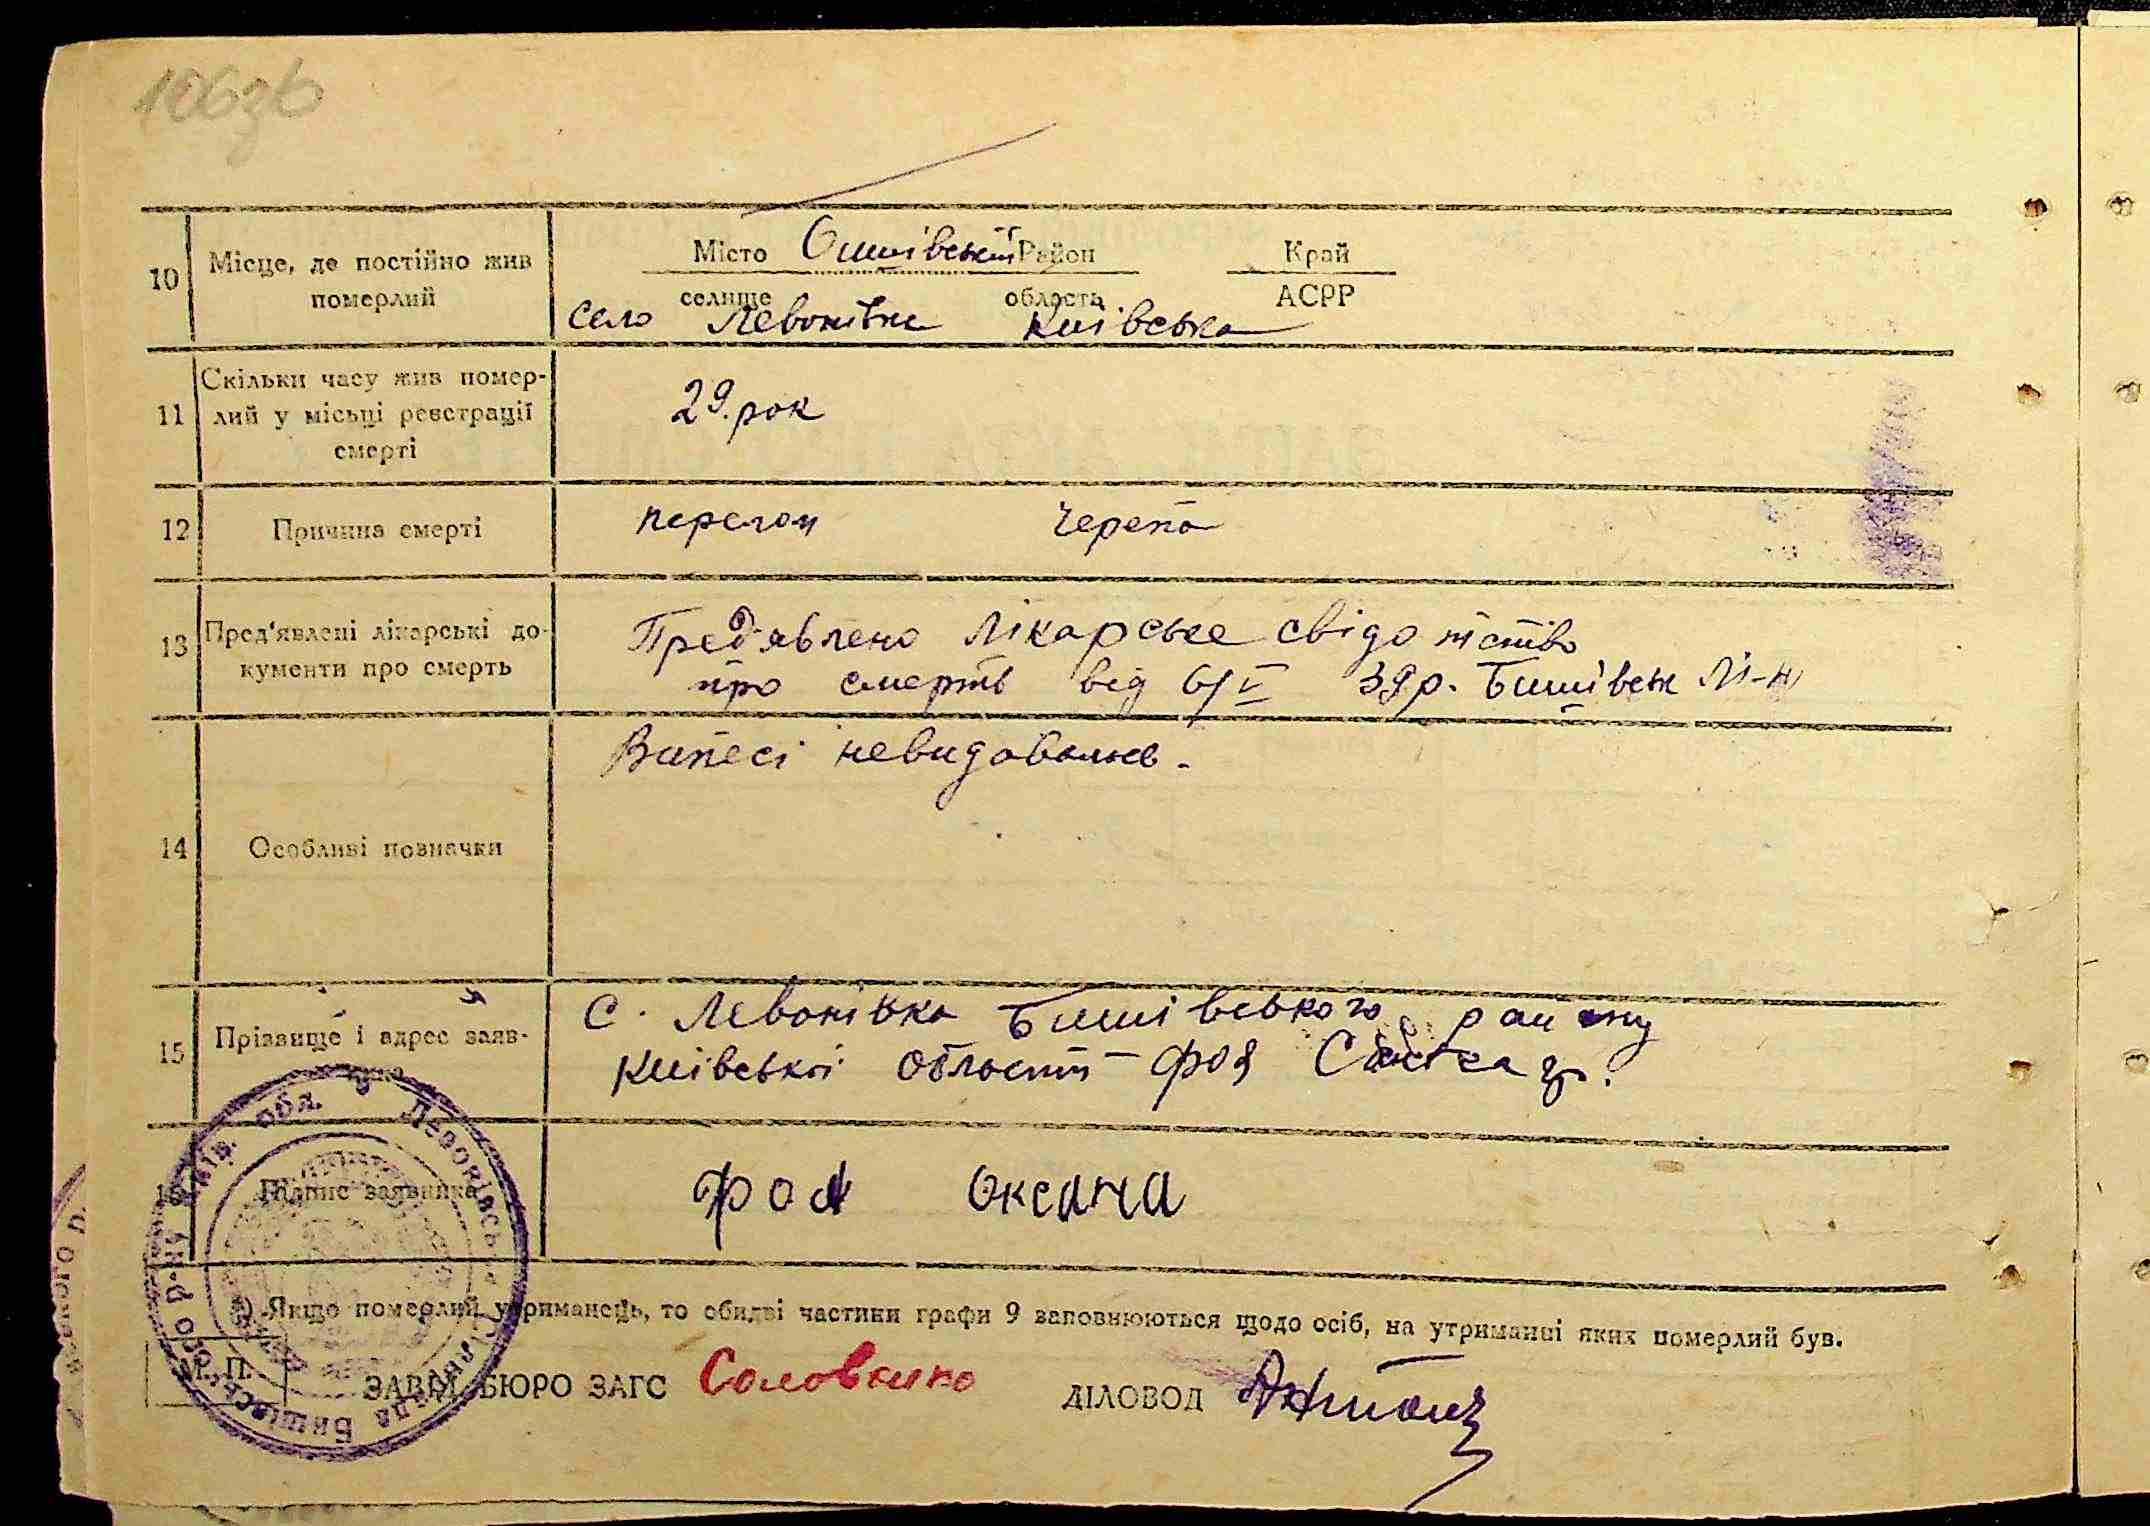 106зв
10 Місце, де постійно жив померлий
Місто Бишівський Район Край
селище область АСРР
село Левонівка Київська
11 Скільки часу жив помер-
лий у місьці реєстрації
смерті
29.рок
12 Причина смерті
перелом черепа
13 Пред'явлені лікарські до-
кументи про смерть
Пред'явлено лікарське свідотство
про смерть від 6/V Здр. Бишівськ
14 Особливі позначки
невидавалися.
15 Прізвище і адрес заяв-
ника
с. Левонівка Бишівського району
Київської області Фоя
16 Підпис заявника
Фоя Оксана
*) Якщо померлий утриманець, то обидві частини графи 9 заповнюються щодо осіб, на утриманні яких померлий був.
М. П.
ЗАВІД. БЮРО ЗАГС Соловенко ДІЛОВОД
Левонівська сільрада Бишівського р-ну Київ. обл.